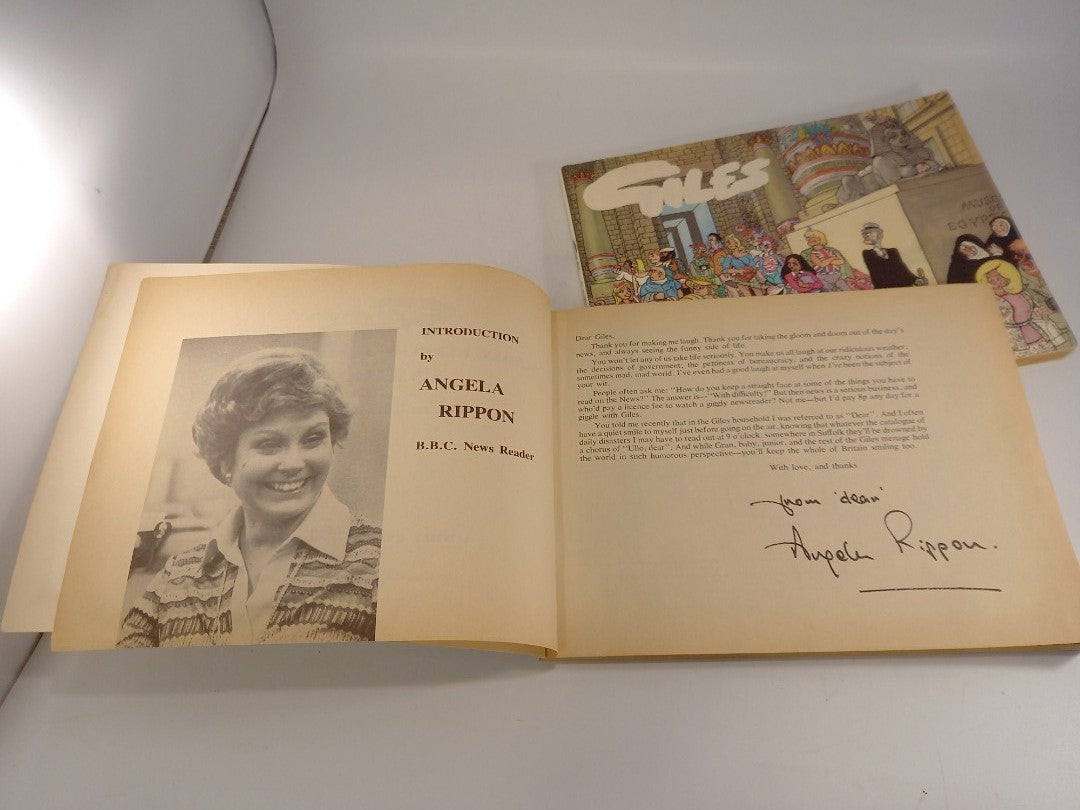 GILES
MUSEUM
OF
EGYPT
INTRODUCTION
by
ANGELA
RIPPON
B.B.C. News Reader
Dear Giles,
Thank you for making me laugh. Thank you for taking the gloom and doom out of the day's
news, and always seeing the funny side of life.
You won't let any of us take life seriously. You make us all laugh at our ridiculous weather;
the decisions of government; the pettiness of bureaucracy, and the crazy notions of the
sometimes mad, mad world. I've even had a good laugh at myself when I've been the subject of
your wit.
People often ask me: "How do you keep a straight face at some of the things you have to
read on the News?" The answer is—"With difficulty!" But then news is a serious business, and
who'd pay a licence fee to watch a giggly newsreader? Not me—but I'd pay 8p any day for a
giggle with Giles.
You told me recently that in the Giles household I was referred to as "Dear". And I often
have a quiet smile to myself just before going on the air, knowing that whatever the catalogue of
daily disasters I may have to read out at 9 o'clock, somewhere in Suffolk they'll be drowned by
a chorus of "Ullo, dear". And while Gran, baby, junior, and the rest of the Giles menage hold
the world in such humorous perspective—you'll keep the whole of Britain smiling too.
With love, and thanks
from 'dear'
Angela Rippon.